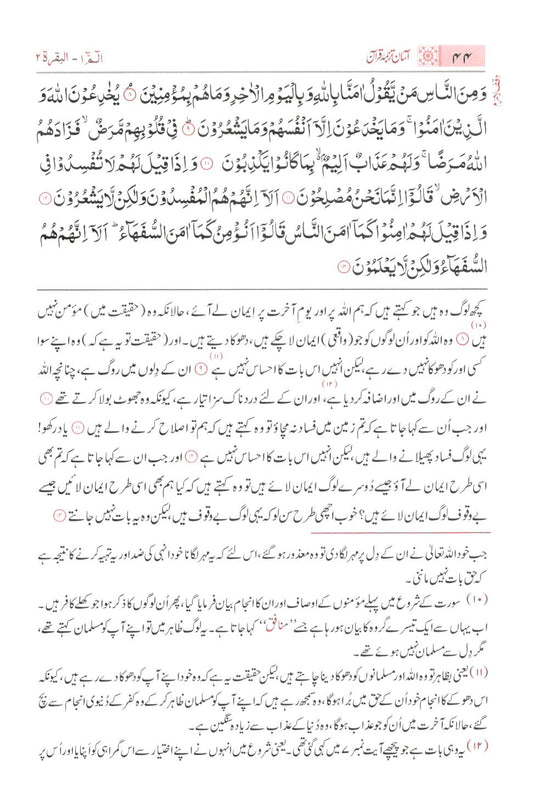 ۴۴ آسان ترجمۂ قرآن الٓمّٓ ۱ - البقرۃ ۲
وَمِنَ النَّاسِ مَنْ يَّقُوْلُ اٰمَنَّا بِاللّٰهِ وَبِالْيَوْمِ الْاٰخِرِ وَمَا هُمْ بِمُؤْمِنِيْنَ ۘ﴿۸﴾ يُخٰدِعُوْنَ اللّٰهَ وَ
الَّذِيْنَ اٰمَنُوْا ۚ وَمَا يَخْدَعُوْنَ اِلَّاۤ اَنْفُسَهُمْ وَمَا يَشْعُرُوْنَ ؕ﴿۹﴾ فِيْ قُلُوْبِهِمْ مَّرَضٌ ۙ فَزَادَهُمُ
اللّٰهُ مَرَضًا ۚ وَلَهُمْ عَذَابٌ اَلِيْمٌۢ ۙ۬ بِمَا كَانُوْا يَكْذِبُوْنَ ﴿۱۰﴾ وَاِذَا قِيْلَ لَهُمْ لَا تُفْسِدُوْا فِي
الْاَرْضِ ۙ قَالُوْۤا اِنَّمَا نَحْنُ مُصْلِحُوْنَ ﴿۱۱﴾ اَلَاۤ اِنَّهُمْ هُمُ الْمُفْسِدُوْنَ وَلٰكِنْ لَّا يَشْعُرُوْنَ ﴿۱۲﴾
وَاِذَا قِيْلَ لَهُمْ اٰمِنُوْا كَمَاۤ اٰمَنَ النَّاسُ قَالُوْۤا اَنُؤْمِنُ كَمَاۤ اٰمَنَ السُّفَهَآءُ ؕ اَلَاۤ اِنَّهُمْ هُمُ
السُّفَهَآءُ وَلٰكِنْ لَّا يَعْلَمُوْنَ ﴿۱۳﴾
کچھ لوگ وہ ہیں جو کہتے ہیں کہ ہم اللہ پر اور یومِ آخرت پر ایمان لے آئے، حالانکہ وہ (حقیقت میں) مؤمن نہیں
ہیں ﴿۸﴾(۱۰) وہ اللہ کو اور اُن لوگوں کو جو (واقعی) ایمان لا چکے ہیں، دھوکا دیتے ہیں۔ اور (حقیقت تو یہ ہے کہ) وہ اپنے سوا
کسی اور کو دھوکا نہیں دے رہے، لیکن انہیں اس بات کا احساس نہیں ہے(۱۱) ﴿۹﴾ ان کے دِلوں میں روگ ہے، چنانچہ اللہ
نے ان کے روگ میں اور اضافہ کر دیا ہے،(۱۲) اور ان کے لئے دردناک سزا تیار ہے، کیونکہ وہ جھوٹ بولا کرتے تھے ﴿۱۰﴾
اور جب اُن سے کہا جاتا ہے کہ تم زمین میں فساد نہ مچاؤ تو وہ کہتے ہیں کہ ہم تو اصلاح کرنے والے ہیں ﴿۱۱﴾ یاد رکھو!
یہی لوگ فساد پھیلانے والے ہیں، لیکن انہیں اس بات کا احساس نہیں ہے ﴿۱۲﴾ اور جب ان سے کہا جاتا ہے کہ تم بھی
اسی طرح ایمان لے آؤ جیسے دُوسرے لوگ ایمان لائے ہیں تو وہ کہتے ہیں کہ کیا ہم بھی اسی طرح ایمان لائیں جیسے
بے وقوف لوگ ایمان لائے ہیں؟ خوب اچھی طرح سن لو کہ یہی لوگ بے وقوف ہیں، لیکن وہ یہ بات نہیں جانتے ﴿۱۳﴾
جب خود اللہ تعالیٰ نے ان کے دِل پر مہر لگا دی تو وہ معذور ہو گئے، اس لئے کہ یہ مہر لگانا خود انہی کی ضد اور یہ تہیہ کرنے کا نتیجہ ہے
کہ حق بات نہیں ماننی۔
(۱۰) سورت کے شروع میں پہلے مؤمنوں کے اوصاف اور ان کا انجام بیان فرمایا گیا، پھر اُن لوگوں کا ذکر ہوا جو کھلے کافر ہیں۔
اب یہاں سے ایک تیسرے گروہ کا بیان ہو رہا ہے جسے ”منافق“ کہا جاتا ہے۔ یہ لوگ ظاہر میں تو اپنے آپ کو مسلمان کہتے تھے،
مگر دِل سے مسلمان نہیں ہوئے تھے۔
(۱۱) یعنی بظاہر تو وہ اللہ اور مسلمانوں کو دھوکا دینا چاہتے ہیں، لیکن حقیقت یہ ہے کہ وہ خود اپنے آپ کو دھوکا دے رہے ہیں، کیونکہ
اس دھوکے کا انجام خود اُن کے حق میں بُرا ہوگا، وہ سمجھ رہے ہیں کہ اپنے آپ کو مسلمان ظاہر کر کے وہ کفر کے دُنیوی انجام سے بچ
گئے، حالانکہ آخرت میں اُن کو جو عذاب ہوگا، وہ دُنیا کے عذاب سے زیادہ سنگین ہے۔
(۱۲) یہ وہی بات ہے جو پیچھے آیت نمبر ۷ میں کہی گئی تھی۔ یعنی شروع میں انہوں نے اپنے اختیار سے اس گمراہی کو اَپنایا اور اُس پر